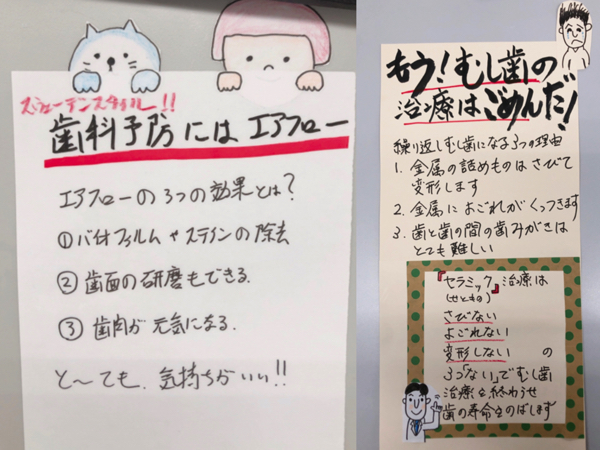 スウェーデンスタイル!!
歯科予防にはエアフロー
エアフローの3つの効果とは?
①バイオフィルムやステインの除去
②歯面の研磨もできる.
③歯肉が元気になる.
と〜ても、気持ちがいい!!
もう!むし歯の
治療はごめんだ!
繰り返しむし歯になる3つの理由
1. 金属の詰めものはさびて
変形します
2. 金属によごれがくっつきます
3. 歯と歯の間の歯みがきは
とても難しい
『セラミック』治療は
(せともの)
さびない
よごれない
変形しない の
3つ「ない」でむし歯
治療を終わらせ
歯の寿命をのばします